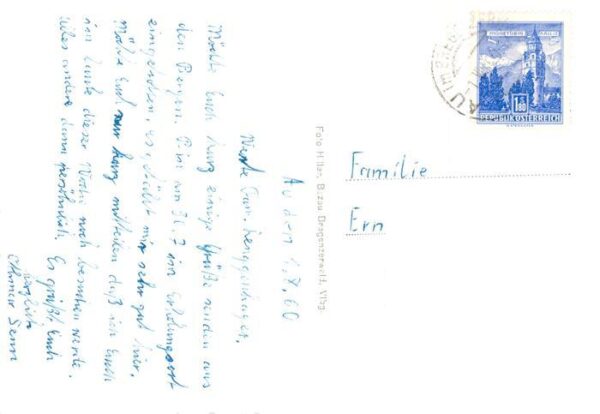 Au den 1.8.60
Werte Fam. Lenggenhager,
Möchte Euch kurz einige Grüße senden aus
den Bergen. Bin am 31.7 im Erholungsort
eingetroffen, es gefällt mir sehr gut hier.
Möchte Euch nur kurz mitteilen daß ich Euch
ende dieser Woche noch besuchen werde.
Alles andere dann persönlich. Es grüßt Euch
herzlich
Senn
Foto Hiller, Bezau Bregenzerwald, Vlbg.
Familie
Ern
1.80
REPUBLIK ÖSTERREICH
AU IM BREG